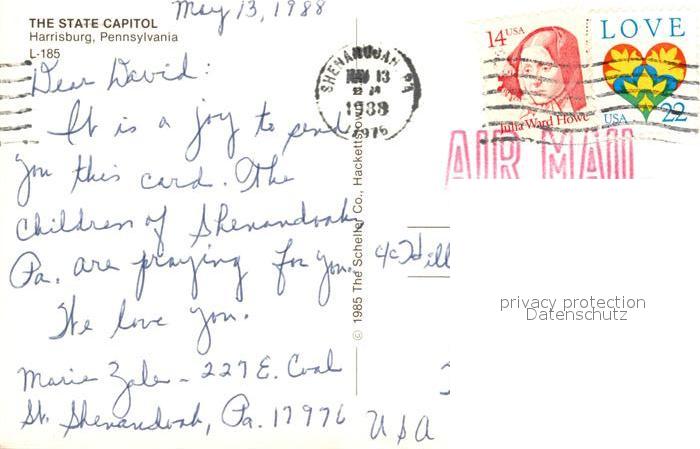 May 13, 1988
THE STATE CAPITOL
Harrisburg, Pennsylvania
L-185
Dear David:
It is a joy to send
you this card. The
children of Shenandoah
Pa. are praying for you.
We love you.
Marie Zale - 227 E. Coal
St. Shenandoah, Pa. 17976
USA
© 1985 The Scheller Co., Hackettstown
SHENANDOAH PA
MAY 13
1988
17976
14 USA
Julia Ward Howe
LOVE
USA 22
AIR MAIL
c/o Hill
privacy protection
Datenschutz